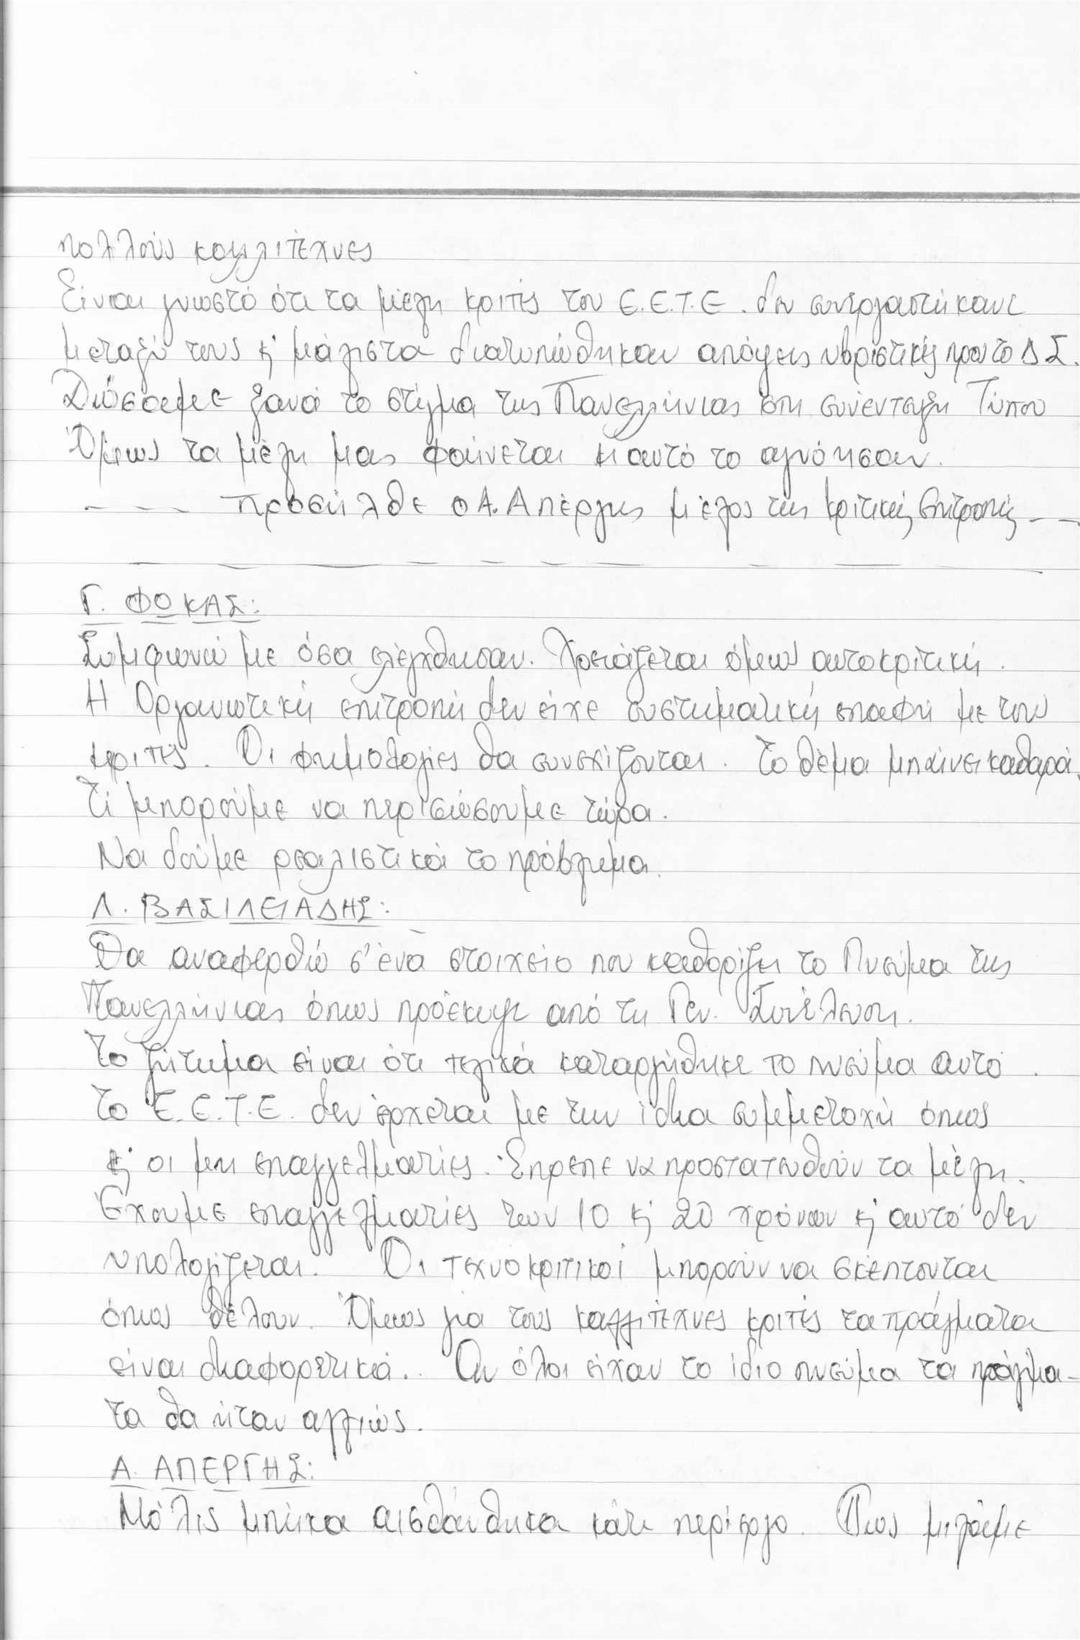 πολλούς καλλιτέχνες
Είναι γνωστό ότι τα μέλη κριτές του Ε.Ε.Τ.Ε. δεν συνεργαστήκανε
μεταξύ τους κ' μάλιστα διατυπώθηκαν απόψεις υβριστικές προς το Δ Σ.
Δώσαμε ξανά το στίγμα της Πανελλήνιας στη συνέντευξη Τύπου
Όμως τα μέλη μας φαίνεται κι αυτό το αγνόησαν.
- - - - προσήλθε ο Α. Απέργης μέλος της κριτικής επιτροπής - -
Γ. ΦΩΚΑΣ:
Συμφωνώ με όσα ελέχθησαν. Χρειάζεται όμως αυτοκριτική.
Η Οργανωτική επιτροπή δεν είχε συστηματική επαφή με τους
κριτές. Οι φημολογίες θα συνεχίζονται. Το θέμα μπαίνει καθαρά,
Τί μπορούμε να περισώσουμε τώρα.
Να δούμε ρεαλιστικά το πρόβλημα.
Λ. ΒΑΣΙΛΕΙΑΔΗΣ:
Θα αναφερθώ σ' ένα στοιχείο που καθορίζει το Πνεύμα της
Πανελλήνιας όπως πρόεκυψε από τη Γεν. Συνέλευση.
Το ζήτημα είναι ότι τελικά καταργήθηκε το πνεύμα αυτό.
Το Ε.Ε.Τ.Ε. δεν έρχεται με την ίδια συμμετοχή όπως
κ' οι μη επαγγελματίες. Έπρεπε να προστατευθούν τα μέλη.
Έχουμε επαγγελματίες των 10 κ' 20 χρόνων κ' αυτό δεν
υπολογίζεται. Οι τεχνοκριτικοί μπορούν να σκέπτονται
όπως θέλουν. Όμως για τους καλλιτέχνες κριτές τα πράγματα
είναι διαφορετικά.. Αν όλοι είχαν το ίδιο πνεύμα τα πράγμα-
τα θα ήταν αλλιώς.
Α. ΑΠΕΡΓΗΣ:
Μόλις μπήκα αισθάνθηκα κάτι περίεργο. Πως μιλάμε